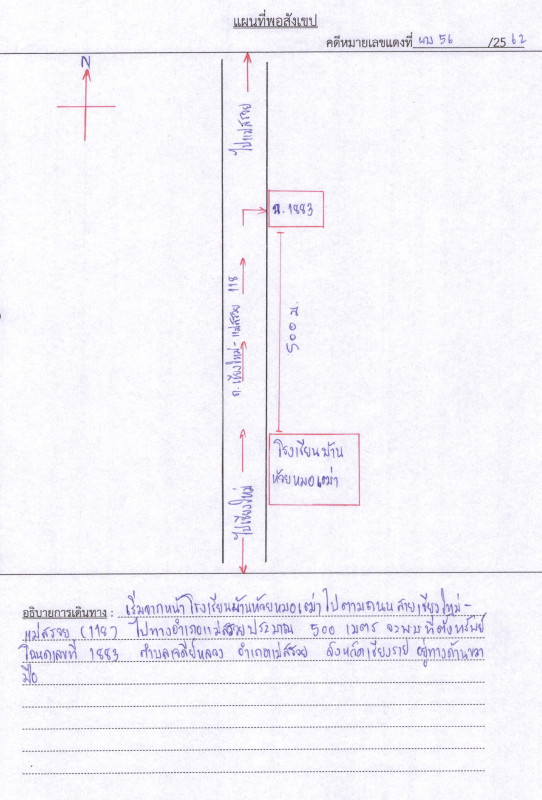 แผนที่พอสังเขป
คดีหมายเลขแดงที่ ผบ 56 /25 62
N
ไปแม่สรวย
ฉ. 1883
ถ. เชียงใหม่ - แม่สรวย 118
500 ม.
โรงเรียนบ้าน
ห้วยหมอเฒ่า
ไปเชียงใหม่
อธิบายการเดินทาง : เริ่มจากหน้าโรงเรียนบ้านห้วยหมอเฒ่า ไปตามถนน สายเชียงใหม่ -
แม่สรวย (118) ไปทางอำเภอแม่สรวยประมาณ 500 เมตร จะพบที่ตั้งทรัพย์
โฉนดเลขที่ 1883 ตำบลเจดีย์หลวง อำเภอแม่สรวย จังหวัดเชียงราย อยู่ทางด้านขวา
มือ